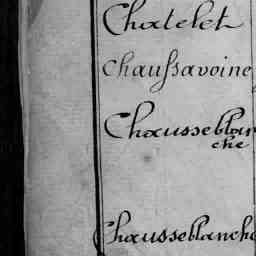 Chatelet
Chaussavoine
Chausseblan
che
Chausseblanche